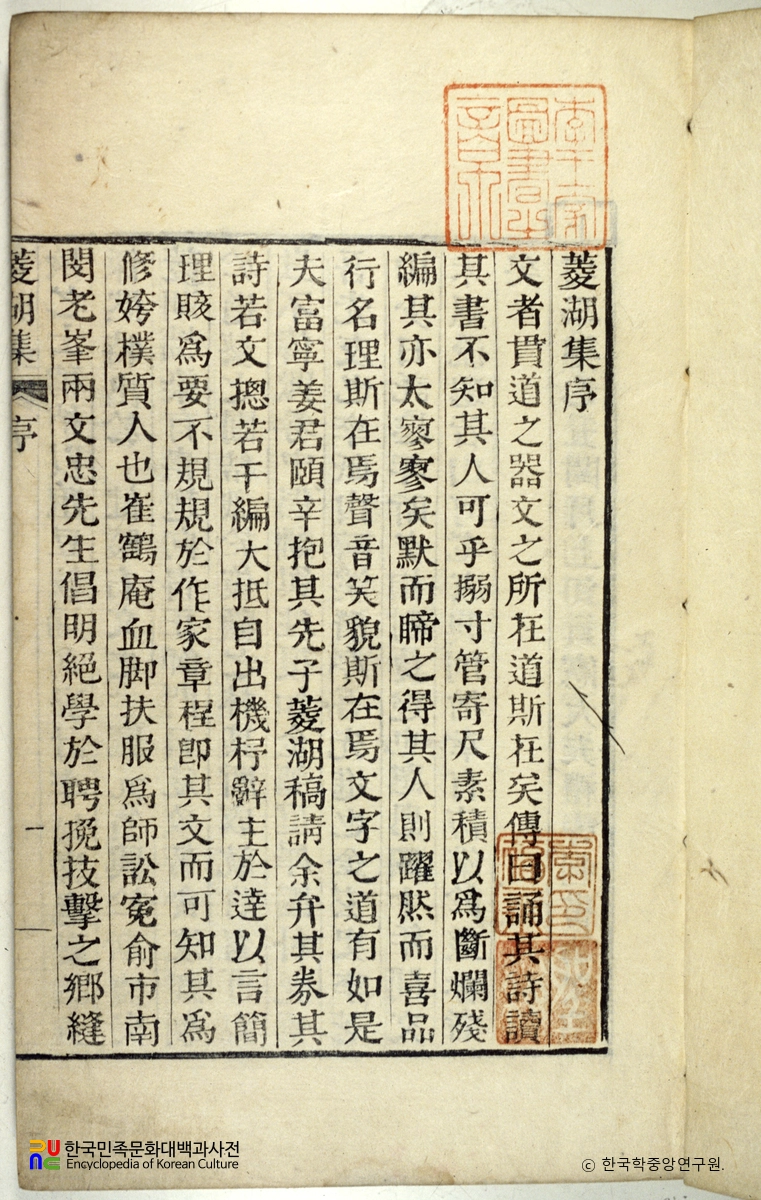 菱湖集序
文者貫道之器文之所在道斯在矣傳曰誦其詩讀
其書不知其人可乎搦寸管寄尺素積以爲斷爛殘
編其亦太寥寥矣默而睇之得其人則躍然而喜品
行名理斯在焉聲音笑貌斯在焉文字之道有如是
夫富寧姜君頤辛抱其先子菱湖稿請余弁其券其
詩若文摠若干編大抵自出機杼辭主於達以言簡
理賅爲要不規規於作家章程卽其文而可知其爲
修姱樸質人也崔鶴庵血脚扶服爲師訟寃俞市南
閔老峯兩文忠先生倡明絕學於聘挽技擊之鄉縫
菱湖集
序
一
한국민족문화대백과사전
Encyclopedia of Korean Culture
ⓒ 한국학중앙연구원.